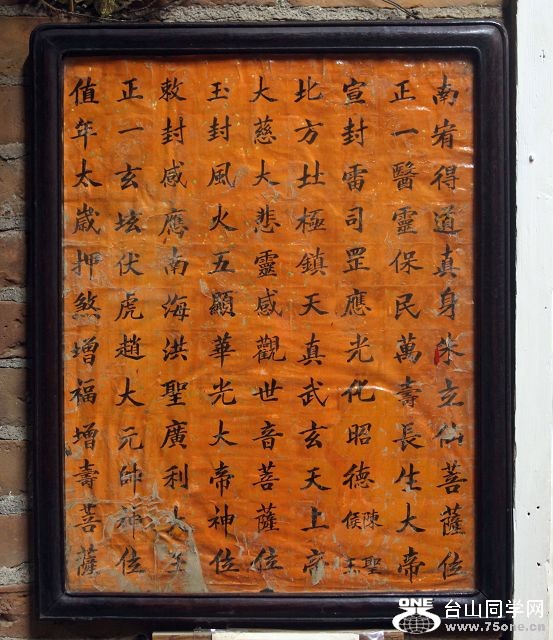 南宥得道真身朱立仙菩薩位
正一醫靈保民萬壽長生大帝
宣封雷司罡應光化昭德陳聖侯王
北方極鎮天真武玄天上帝
大慈大悲靈感觀世音菩薩位
玉封風火五顯華光大帝神位
敕封感應南海洪聖廣利大王
正一玄坛伏虎趙大元帥神位
值年太歲押煞增福增壽菩薩
ONE
台山同学网
www.75one.cn